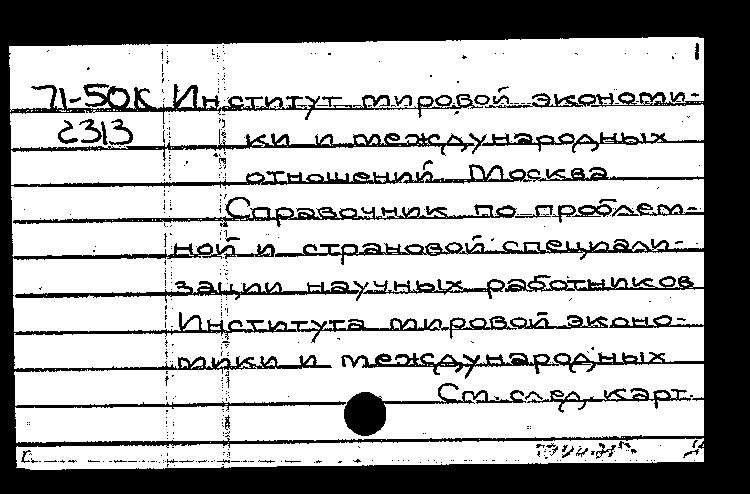 1
71-50К Институт мировой экономи-
2313 ки и международных
отношений. Москва.
Справочник по проблем-
ной и страновой специали-
зации научных работников
Института мировой эконо-
мики и международных
См. след. карт.